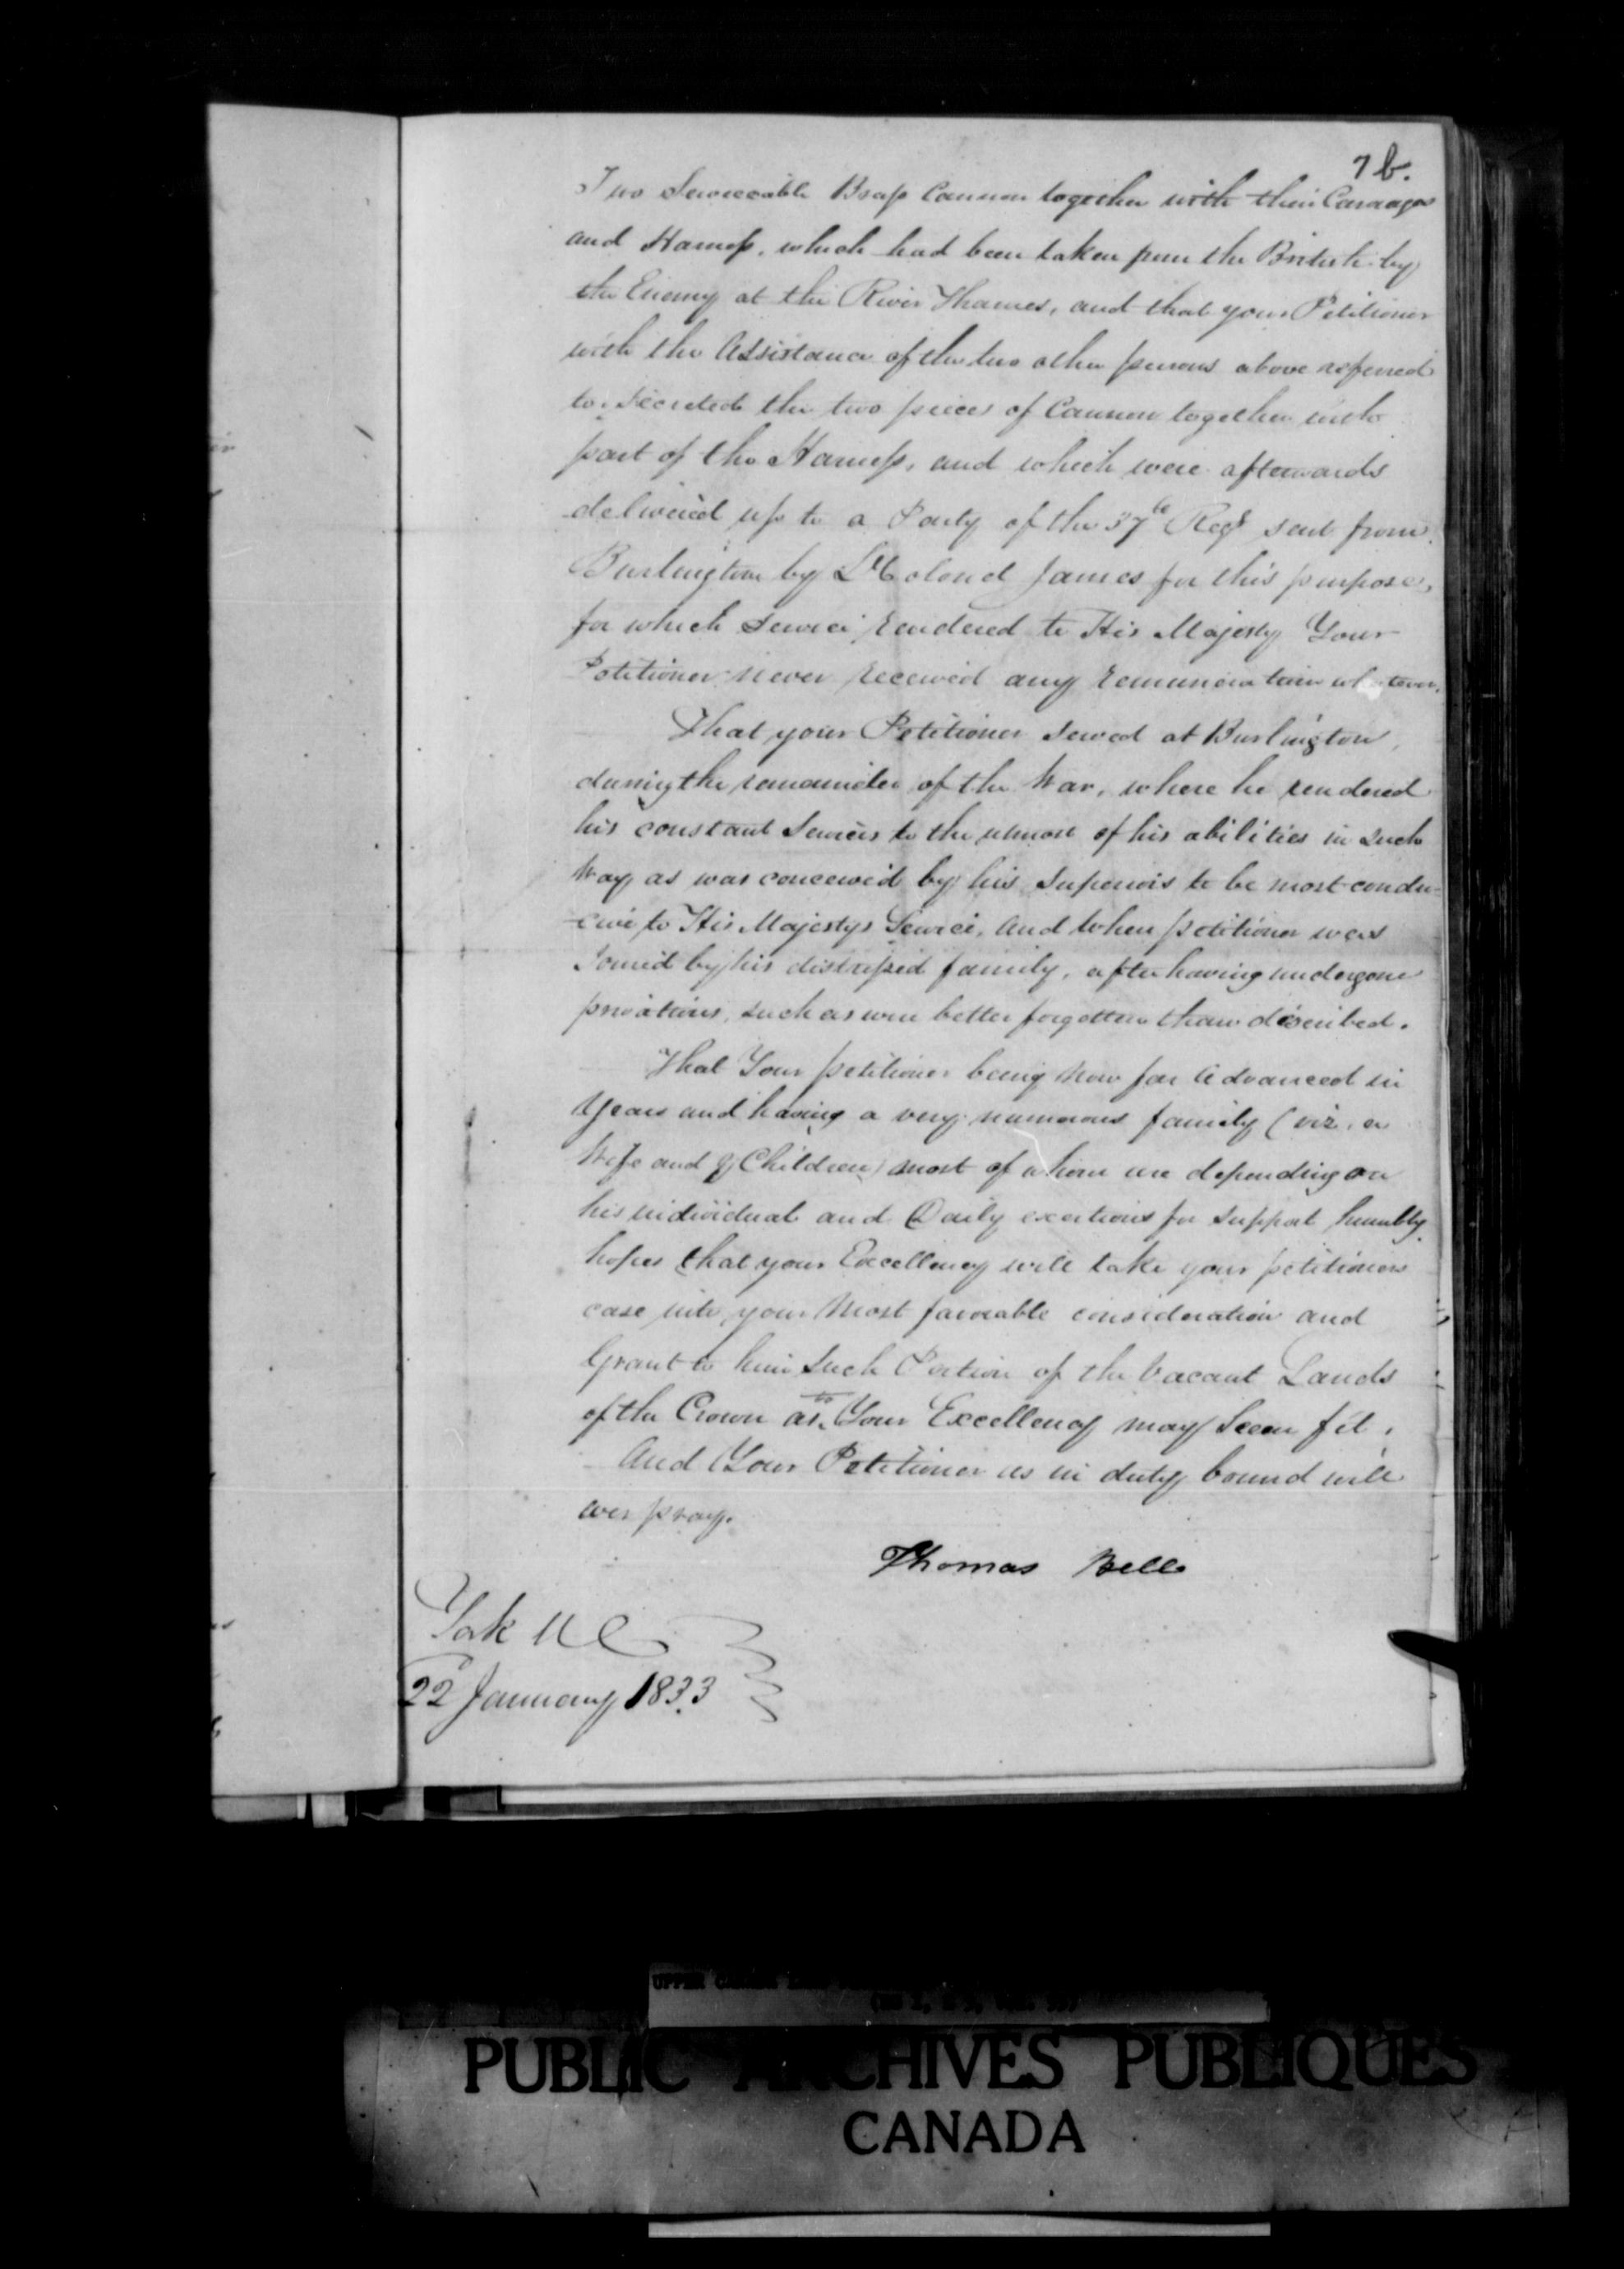 7b.
Two Serviceable Brass Cannon together with their Carriages
and Harness, which had been taken from the British by
the Enemy at the River Thames, and that your Petitioner
with the Assistance of the two other persons above referred
to, Secreted the two pieces of Cannon together with
part of the Harness, and which were afterwards
delivered up to a Party of the 37th Regt sent from
Burlington by Lt Colonel James for this purpose,
for which Service rendered to His Majesty Your
Petitioner never received any remuneration whatever.
That your Petitioner served at Burlington,
during the remainder of the War, where he rendered
his constant Services to the utmost of his abilities in such
Way as was conceived by his Superiors to be most condu-
cive to His Majestys Service, and when petitioner was
Joined by his distressed family, after having undergone
privations, such as were better forgotten than described.
That Your petitioner being now far Advanced in
Years and having a very numerous family (viz. a
Wife and Children) most of whom are depending on
his individual and Daily exertions for support humbly
hopes that your Excellency will take your petitioners
case into your Most favorable consideration and
Grant to him Such Portion of the Vacant Lands
of the Crown as to Your Excellency may Seem fit.
And Your Petitioner as in duty bound will
ever pray.
Thomas Bell
York UC
22 January 1833
PUBLIC ARCHIVES PUBLIQUES
CANADA